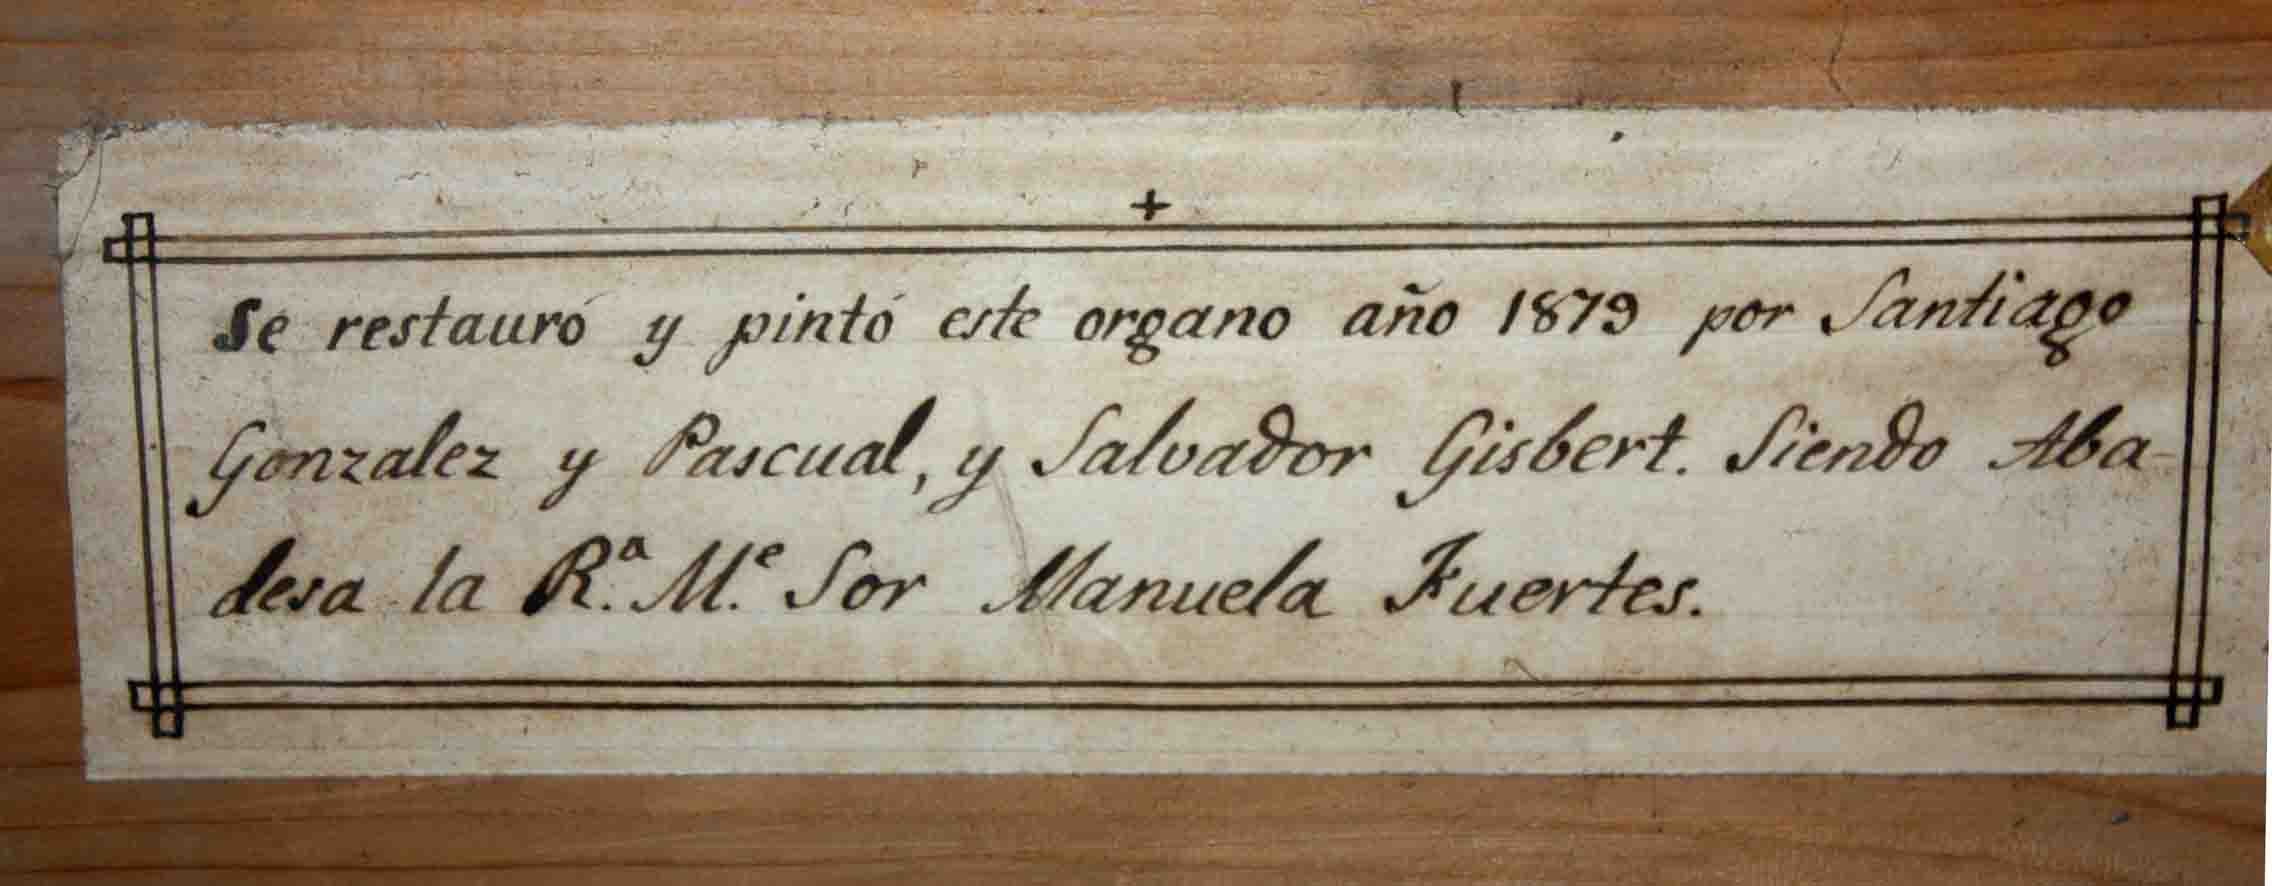 +
Se restauró y pintó este organo año 1879 por Santiago
Gonzalez y Pascual, y Salvador Gisbert. Siendo Aba-
desa la R.ª M.ᵉ Sor Manuela Fuertes.